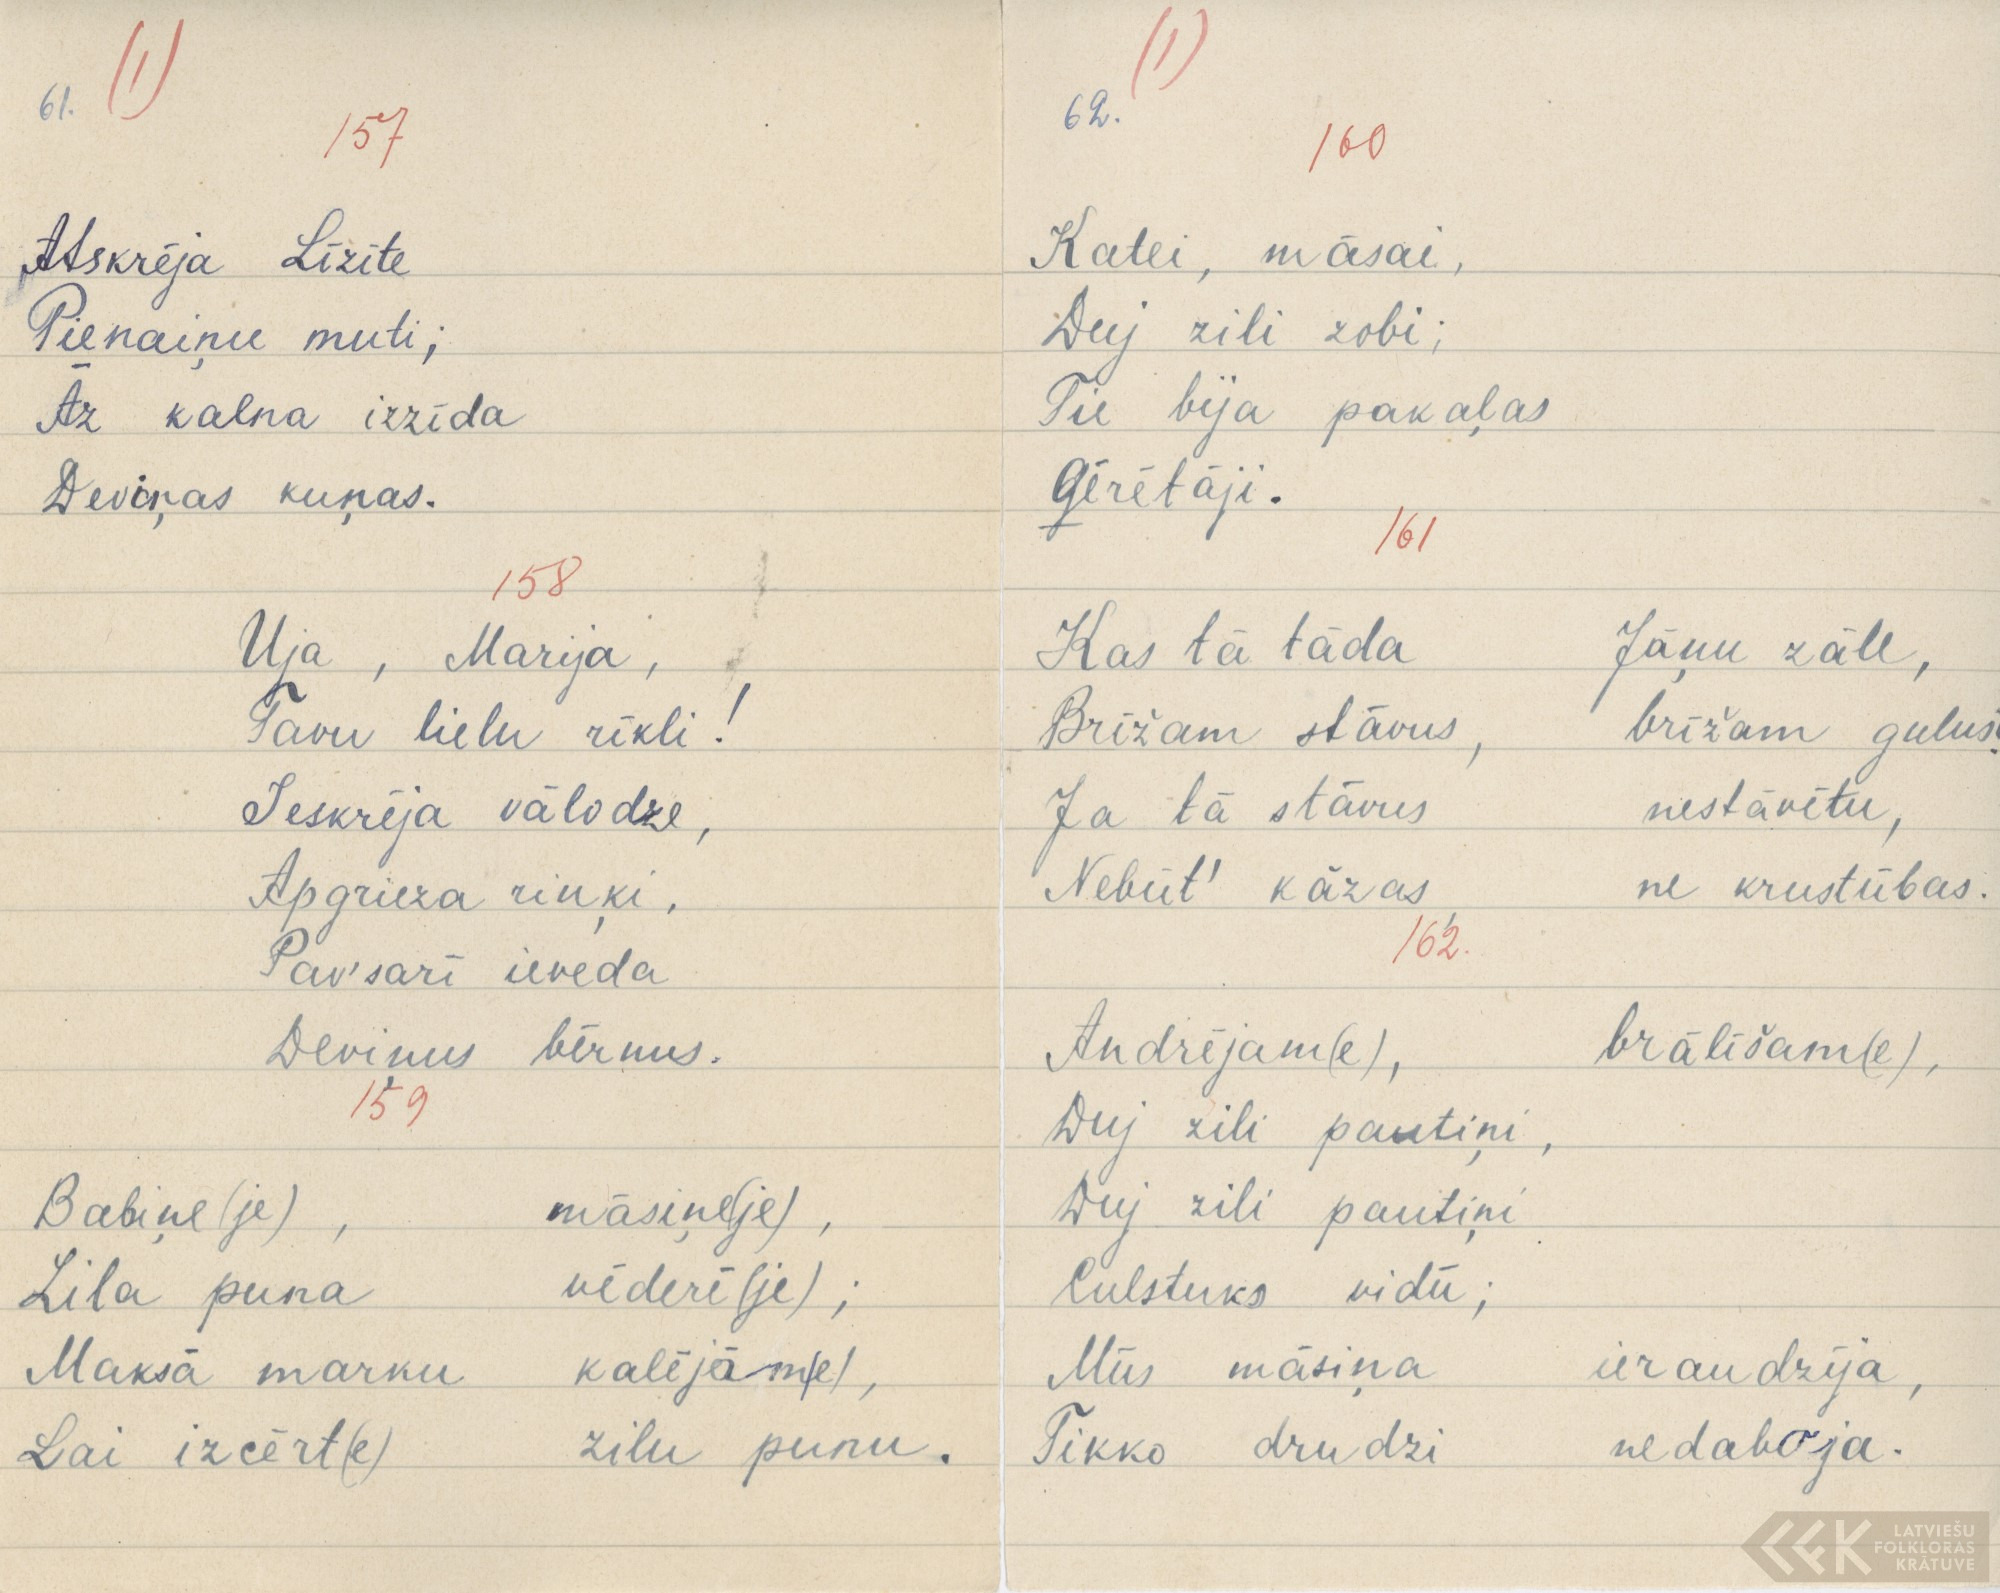 61. (1)
157
Atskrēja Līzīte
Pienaiņu muti;
Āz kalna izzīda
Deviņas kuņas.
158
Uja, Marija,
Tavu lielu rīkli!
Ieskrēja vālodze,
Apgrieza riņķi,
Pav'sarī ieveda
Deviņus bērnus.
159
Babiņe(je), māsiņe(je),
Lila puna vēderē(je);
Maksā marku kalējām(e),
Lai izcērt(e) zilu punu.
62. (1)
160
Katei, māsai,
Duj zili zobi;
Tie bija pakaļas
Ģērētāji.
161
Kas tā tāda Jāņu zāle,
Brīžam stāvus, brīžam gulus.
Ja tā stāvus nestāvētu,
Nebūt' kāzas ne krustūbas.
162.
Andrējam(e), brālīšam(e),
Duj zili pautiņi,
Duj zili pautiņi
Culstuks vidū;
Mūs māsiņa ieraudzīja,
Tikko drudzi nedaboja.
LATVIEŠU
FOLKLORAS
KRĀTUVE